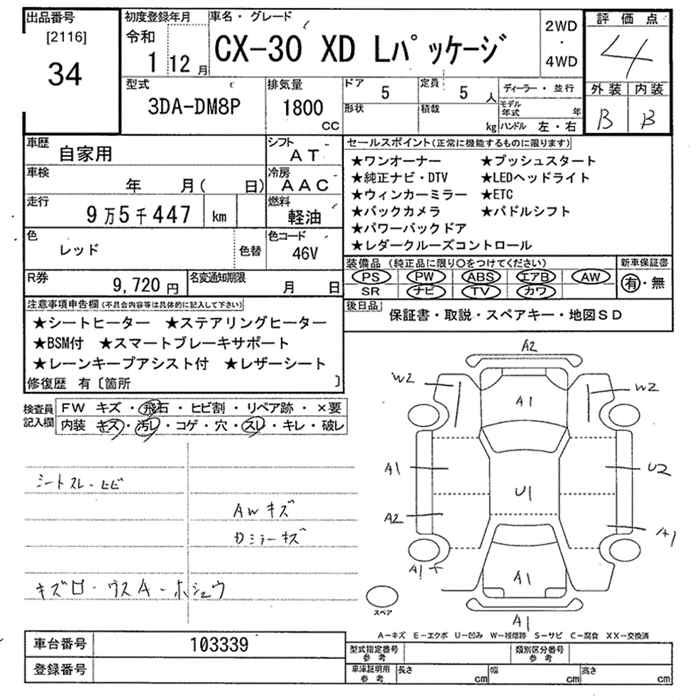 出品番号 初度登録年月 車名・グレード 2WD・4WD 評価点
[2116] 令和
34 1 12月 CX-30 XD Lパッケージ 4
型式 排気量 ドア 定員 ディーラー・並行 外装 内装
3DA-DM8P 1800 CC 5 5人 B B
形状 積載 kg モデル年式 年
ハンドル 左・右
車歴 自家用 シフト AT セールスポイント(正常に機能するものに限ります)
車検 年 月( 日) 冷房 AAC ★ワンオーナー ★プッシュスタート
★純正ナビ・DTV ★LEDヘッドライト
走行 9万5千447 km 燃料 軽油 ★ウィンカーミラー ★ETC
★バックカメラ ★パドルシフト
★パワーバックドア
色 レッド 色替 色コード 46V ★レダークルーズコントロール
R券 9,720円 名変通知期限 月 日 装備品(純正品に限り○をつけてください) 新車保証書
PS PW ABS エアB AW 有・無
SR ナビ TV カワ
注意事項申告欄(不具合内容等は具体的に記入して下さい) 後日品 保証書・取説・スペアキー・地図SD
★シートヒーター ★ステアリングヒーター
★BSM付 ★スマートブレーキサポート
★レーンキープアシスト付 ★レザーシート
修復歴 有〔箇所 〕
検査員記入欄 FW キズ・飛石・ヒビ割・リペア跡・×要
内装 キズ・汚レ・コゲ・穴・スレ・キレ・破レ
シートスレ・ヒビ
AWキズ
カミラーキズ
キズロ・ウスA・ホシュウ
A2
W2 A1 W2
A1 U1 U2
A2 A1
A1 A1
A1
スペア
A-キズ E-エクボ U-凹み W-補修跡 S-サビ C-腐食 XX-交換済
車台番号 103339 型式指定番号 参考 類別区分番号 参考
登録番号 車庫証明用 参考 長さ cm 幅 cm 高さ cm